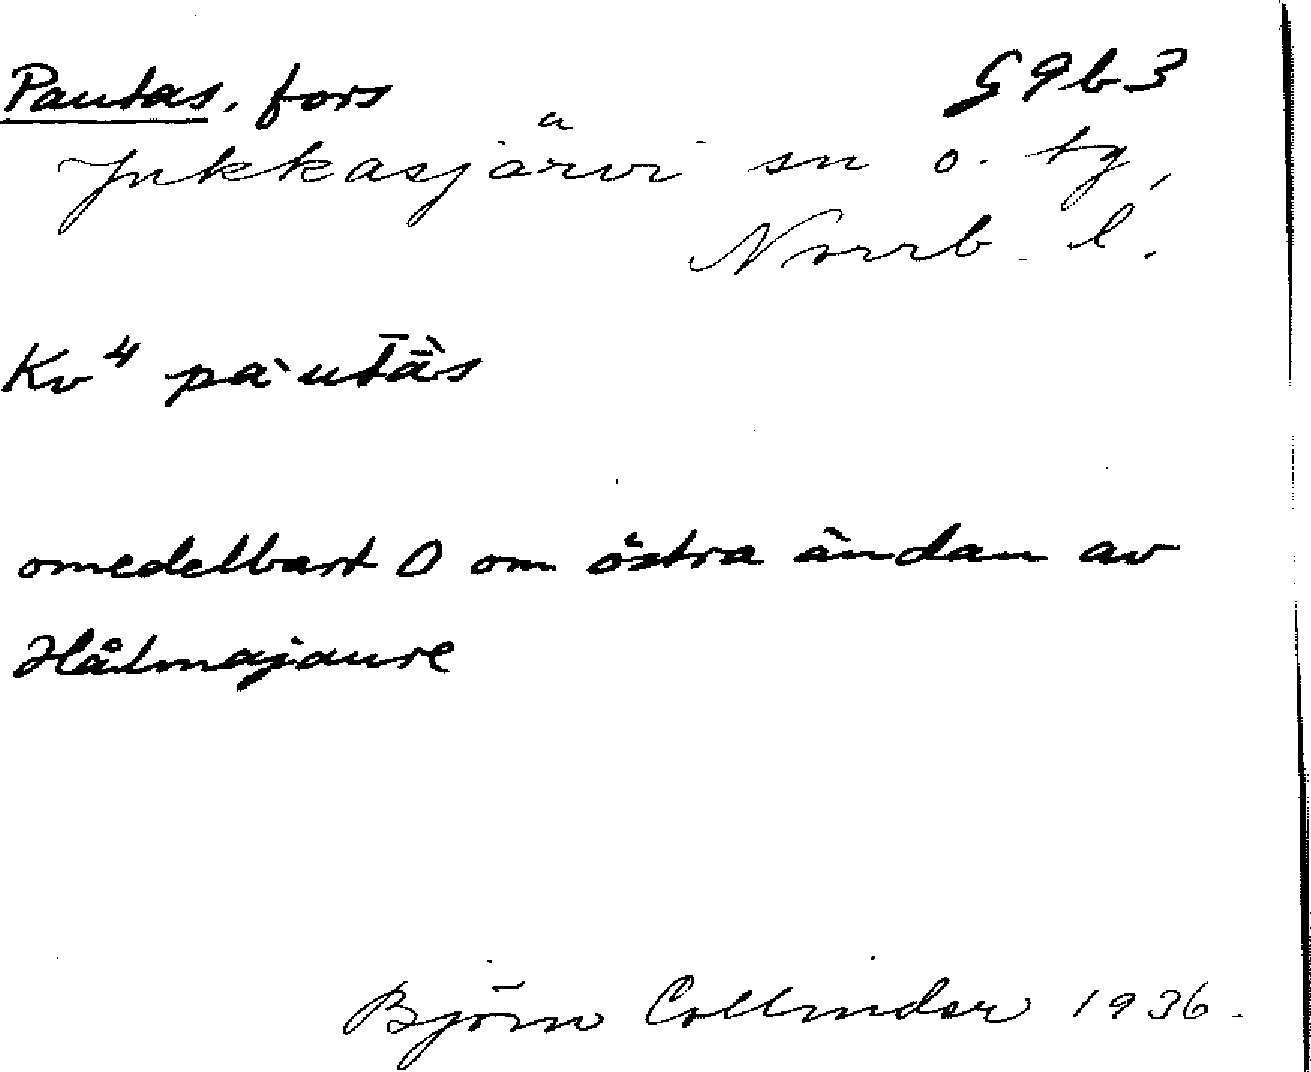 Pautas, fors G9b3
Jukkasjärvi sn o. tg,
Norrb. l.
Kv⁴
omedelbart O om östra ändan av
Håtmajaure
Björn Collinder 1936.